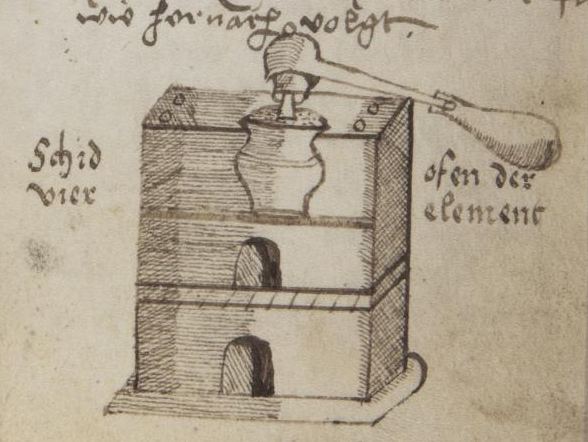 wie hernach volgt.
Schid
vier
ofen der
element